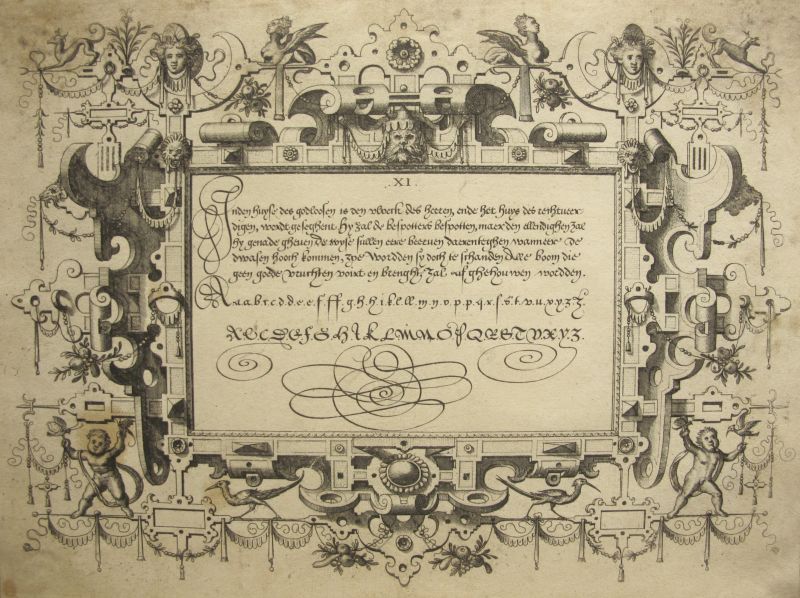 .XI.
Inden huyse des godloosen is den vloeck des heeren, ende het huys des rechtueer
digen, wordt geseghent. hy zal de bespotters bespotten, maer den ellendighen zal
hy genade gheuen. De wyse sullen eere beeruen daerenteghen wanneer De
dwasen hooch kommen, zoo wordden sy doch te schanden. Alle boom die
geen goede vruchten voirt en brenght, zal afghehouwen wordden.
A a a b c d d e e f ff g h h i k l ll m n o p p q r s s t v u x y z z
A B C D E F G H I K L M N O P Q R S T V X Y Z